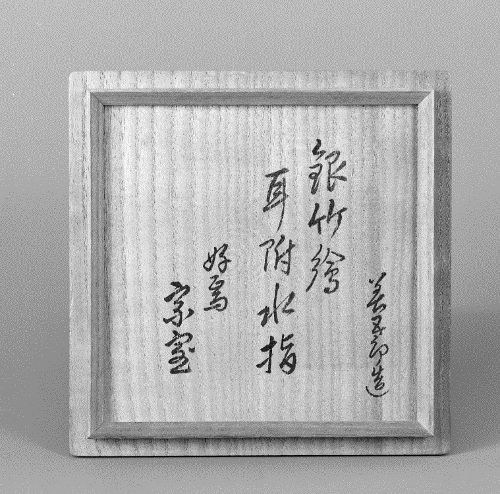 善五郎造
銀竹繪
耳附水指
好焉
宗室